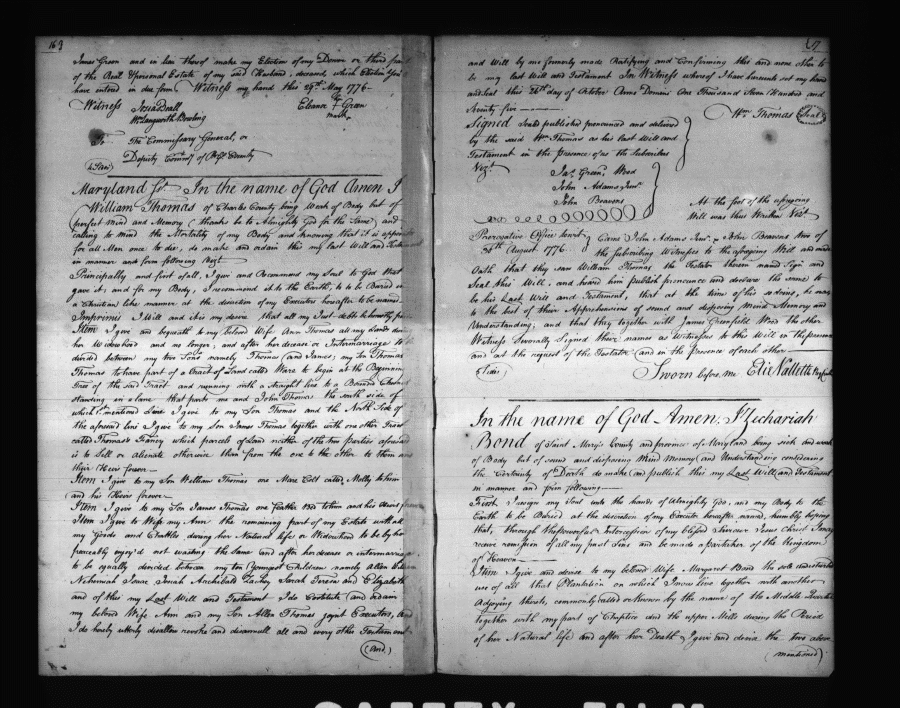 163
James Green and in lieu thereof make my Election of my Dower or third part
of the Real & personal Estate of my said Husband, deceased, which Election you
have entered in due form Witness my hand this 29th. May 1776 —
Witness Josias Beall
Wm Langworth Bowling
Elianor Green
mark
To The Commissary General, or
Deputy Commy of Chs. County
Maryland Sr. In the name of God Amen I
William Thomas of Charles County being Weak of Body but of
perfect Mind and Memory, thanks be to Almighty God for the Same, and
calling to mind the Mortality of my Body and knowing that it is
for all Men once to die, do make and ordain this my last Will and
in manner and form following Vizt
Principally and first of all, I give and Recommend my Soul to God that
gave it, and for my Body, I recommend it to the Earth, to be Buried in
a Christian like manner at the discretion of my Executors hereafter to be named
Imprimis I Will and it is my desire that all my Just debts be honestly
Item I give and bequeath to my beloved Wife Ann Thomas all my Lands during
her Widowhood and no longer, and after her decease or Intermarriage to be
divided between my two Sons namely Thomas and James, my Son Thomas
Thomas to have part of a tract of Land called Ware to begin at the Beginning
Tree of the said Tract and running with a straight line to a Bounded
standing in a lane that parts me and John Thomas the South side of
which mentioned Line I give to my Son Thomas and the North Side of
the aforesaid line I give to my Son James Thomas together with one other Tract
called Thomas's which parcels of Land neither of the two parties aforesaid
is to Sell or alienate otherwise than from the one to the other to them and
their Heirs forever —
Item I give to my Son William Thomas one Mare Colt called Molly to him
and his Heirs forever
Item I give to my Son James Thomas one feather Bed to him and his Heirs
Item I give to Wife my Ann the remaining part of my Estate with all
my Goods and Chattles during her Natural life or Widowhood to be by her
peaceably enjoy'd not wasting the Same and after her decease or intermarriage
to be equally divided between my ten Youngest Children namely Allen
Nehemiah Isaac Josiah Archibald Sarah Teresia and Elizabeth
and of this my Last Will and Testament I do Constitute and ordain
my beloved Wife Ann and my Son Allen Thomas joynt Executors, and
I do hereby utterly disallow revoke and disannull all and every other Testament
(and)
and Will by me formerly made Ratifying and Confirming this and none other to
be my last Will and Testament In Witness whereof I have hereunto set my hand
and Seal this 26th day of October Anno Domini One Thousand Seven Hundred and
Seventy five —
Wm Thomas Seal
Signed Sealed published pronounced and delivered
by the said Wm Thomas as his last Will and
Testament in the Presence of us the Subscribers
Vizt.
Jas. Green, Wood
John Adams Junr.
John Beavens
At the foot of the aforegoing
Will was thus Written Vizt.
Prerogative Office
August 1776
Came John Adams Junr. & John Beavens two of
the Subscribing Witnesses to the aforegoing Will and made
Oath that they saw William Thomas the Testator therein named Sign and
Seal this Will, and heard him publish pronounce and declare the same to
be his Last Will and Testament, that at the time of his so doing, he was
to the best of their Apprehensions of sound and disposing Mind Memory and
Understanding; and that they together with James Greenfield Wood the other
Witness Severally Signed their names as Witnesses to this Will in the presence
and at the request of the Testator and in the presence of each other
Sworn before me Elie Vallette
In the name of God Amen, I Zechariah
Bond of Saint Mary's County and province of Maryland being sick and weak
of Body but of sound and disposing Mind Memory and Understanding considering
the Certainty of Death do make and publish this my Last Will and Testament
in manner and form following —
First I resign my Soul into the hands of Almighty God, and my Body to the
Earth to be Buried at the discretion of my Executor hereafter named, humbly hoping
that, through the powerful Intercession of my blessed Saviour Jesus Christ I may
receive remission of all my past Sins and be made a partaker of the Kingdom
of Heaven —
Item I give and devise to my beloved Wife Margaret Bond the sole
use of all that Plantation on which I now live together with another
Adjoying thereto, commonly called or known by the name of the Middle
together with my part of Chaptico and the upper Mills during the Period
of her Natural life and after her Death I give and devise the two above
(mentioned)